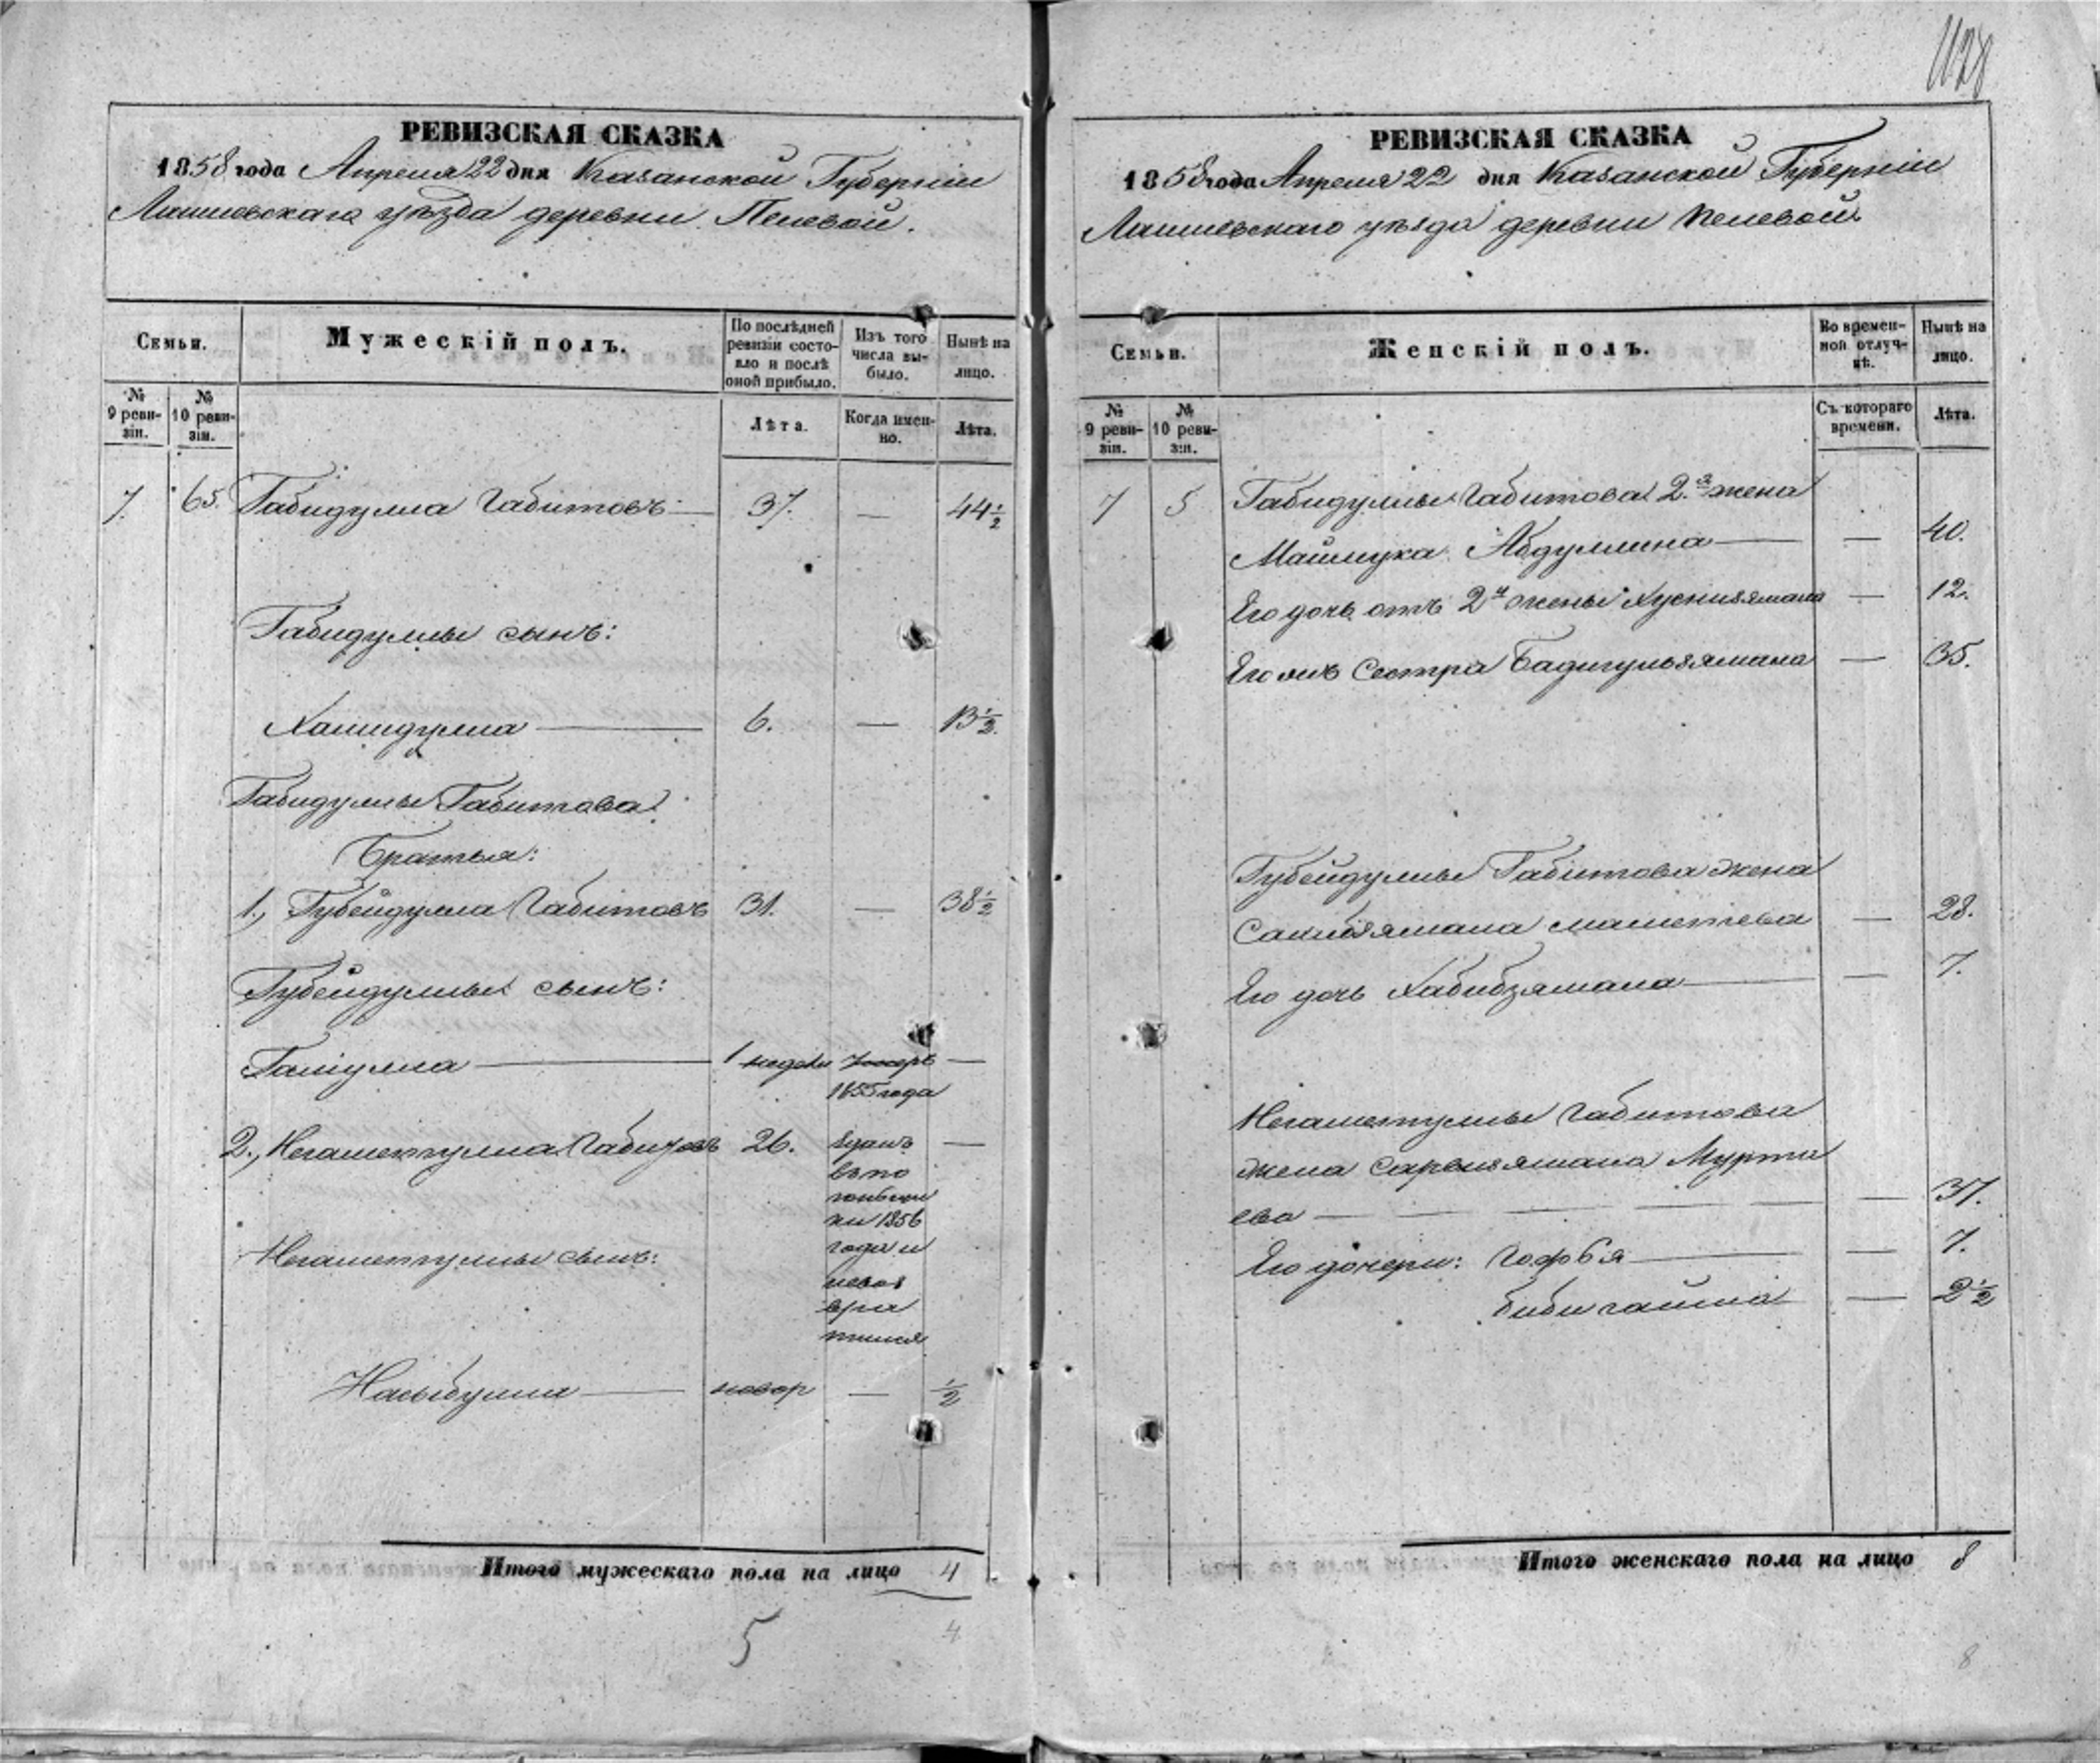 1128
РЕВИЗСКАЯ СКАЗКА
1858 года Апреля 22 дня Казанской Губернiи
Лаишевскаго уѣзда деревни Пелевой.
Семьи.
Мужескiй полъ.
По послѣдней ревизiи состояло и послѣ оной прибыло.
Изъ того числа выбыло.
Нынѣ на лицо.
№ 9 ревизiи.
№ 10 ревизiи.
Лѣта.
Когда именно.
Лѣта.
7. 65. Габидулла Габитовъ — 37. — 44½
Габидуллы сынъ:
Хамидулла — 6. — 13½
Габидуллы Габитова
Братья:
1., Губейдулла Габитовъ 31. — 38½
Губейдуллы сынъ:
Галiулла — 1 недели Умеръ —
1855 года
2., Негаметулла Габитовъ 26. —
1856
года и
невоз
вра
тился
Негаметуллы сынъ:
Насыбулла — новор — ½
Итого мужескаго пола на лицо 4
5
4
РЕВИЗСКАЯ СКАЗКА
1858 года Апреля 22 дня Казанской Губернiи
Лаишевскаго уѣзда деревни Пелевой
Семьи.
Женскiй полъ.
Во временной отлучкѣ.
Нынѣ на лицо.
№ 9 ревизiи.
№ 10 ревизiи.
Съ котораго времени.
Лѣта.
7 5 Габидуллы Габитова 2.я жена
Маймука Абдуллина — — 40.
Его дочь отъ 2й жены Хуснизямала — 12.
Его же Сестра Бадигульзямала — 35.
Губейдуллы Габитова жена
Сахибзямала — 28.
Его дочь Хабибзямала — — 7.
Негаметуллы Габитова
жена Сарвизямала Мурта
ева — — — — — 37.
Его дочери: Гофбя — — 7.
Биби — 2½
Итого женскаго пола на лицо 8
8